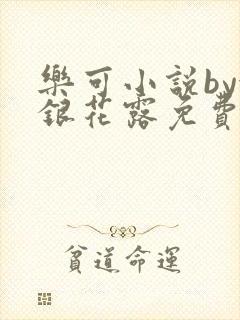 樂可小説by
銀花露免費
貧道命運